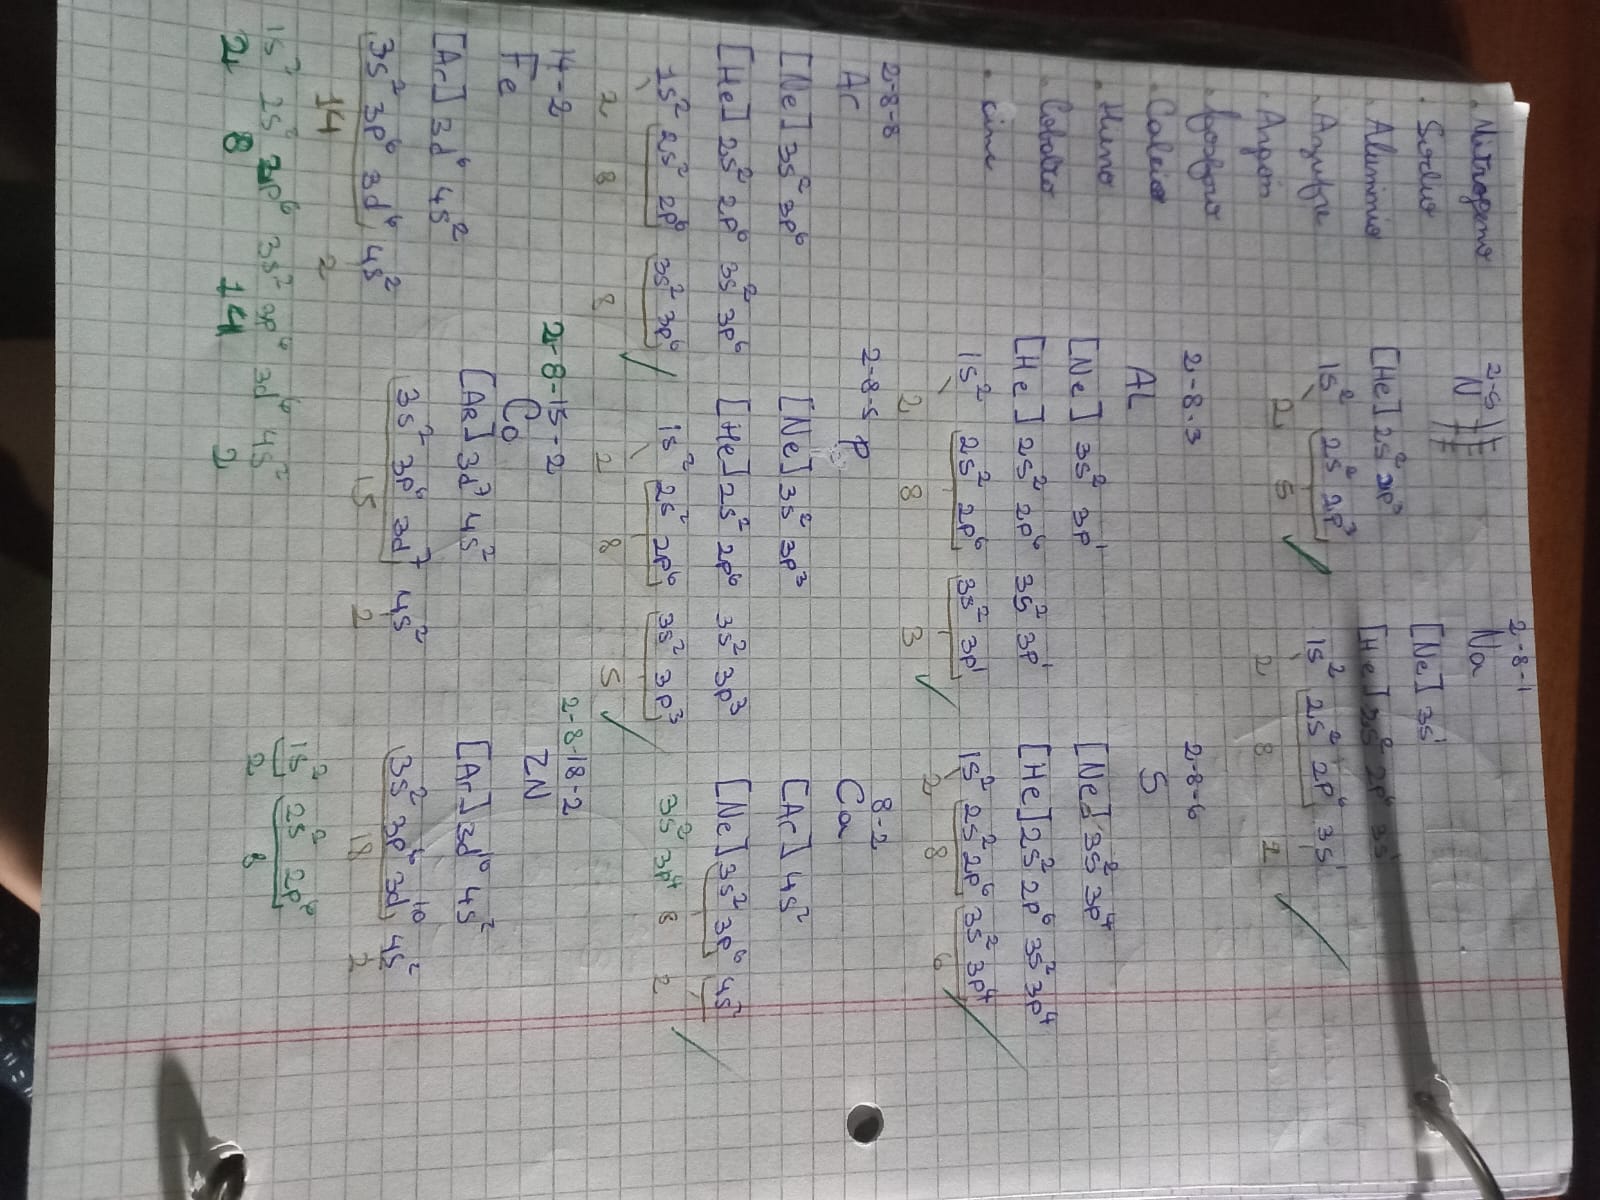 . Nitrogeno
. Sodio
Aluminio
. Azufre
. Argon
. fosforo
. Calcio
. Hierro
. Cobalto
. cinc
2-5
N
[He] 2s² 2p³
1s² 2s² 2p³
2 5
2-8-1
Na
[Ne] 3s¹
[He] 2s² 2p⁶ 3s¹
1s² 2s² 2p⁶ 3s¹
2 8 1
2-8-3
AL
[Ne] 3s² 3p¹
[He] 2s² 2p⁶ 3s² 3p¹
1s² 2s² 2p⁶ 3s² 3p¹
2 8 3
2-8-6
S
[Ne] 3s² 3p⁴
[He] 2s² 2p⁶ 3s² 3p⁴
1s² 2s² 2p⁶ 3s² 3p⁴
2 8 6
2-8-8
Ar
[Ne] 3s² 3p⁶
[He] 2s² 2p⁶ 3s² 3p⁶
1s² 2s² 2p⁶ 3s² 3p⁶
2 8 8
2-8-5 P
[Ne] 3s² 3p³
[He] 2s² 2p⁶ 3s² 3p³
1s² 2s² 2p⁶ 3s² 3p³
2 8 5
8-2
Ca
[Ar] 4s²
[Ne] 3s² 3p⁶ 4s²
3s² 3p⁴ 8 2
14-2
Fe
[Ar] 3d⁶ 4s²
3s² 3p⁶ 3d⁶ 4s²
14 2
1s² 2s² 2p⁶ 3s² 3p⁶ 3d⁶ 4s²
2 8 14 2
2-8-15-2
Co
[Ar] 3d⁷ 4s²
3s² 3p⁶ 3d⁷ 4s²
15 2
2-8-18-2
ZN
[Ar] 3d¹⁰ 4s²
3s² 3p⁶ 3d¹⁰ 4s²
18 2
1s² 2s² 2p⁶
2 8